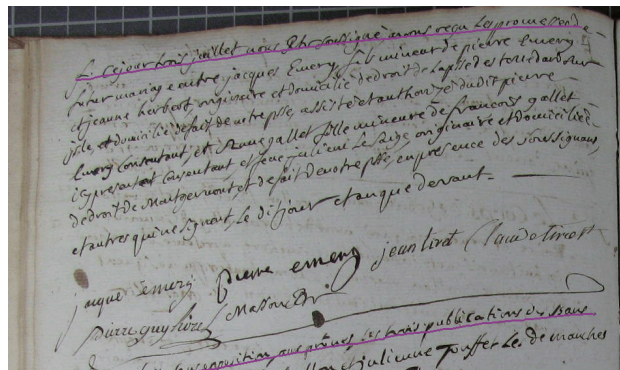 Ce jour trois juillet nous Rr soussigné avons reçu les promesses de
futur mariage entre jacques Emery fils mineur de pierre Emery
et jeanne herbert originaire et domicilié de droit de la psse des
psse et domicilié de fait de notre psse assisté et authorizé dudit pierre
Emery consentant, et Anne gallet fille mineure de francois gallet
icy present et consentant et feue julienne Le Sage originaire et domiciliée
de droit de Montgermont, et de fait de notre psse, en presence des soussignans
et autres qui ne signent, le dit jour et an que devant
jacque Emery pierre emery jean tirot Claude tirot
pierre guy Masson
opposition, nous les trois publications des bans
et julienne touffet Le de marches